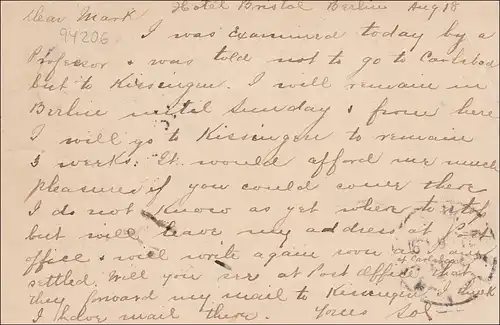 Hotel Bristol Berlin Aug 18
Dear Mark
94206
I was examined today by a
Professor & was told not to go to Carlsbad
but to Kissingen. I will remain in
Berlin until Sunday & from here
I will go to Kissingen to remain
3 weeks. It would afford me much
pleasure if you could come there
I do not know as yet where to stop
but will leave my address at Post
office & will write again soon as I am
settled. Will you see at Post Office
at Carlsbad
that
they forward my mail to Kissingen I think
I have mail there. Yours Sol